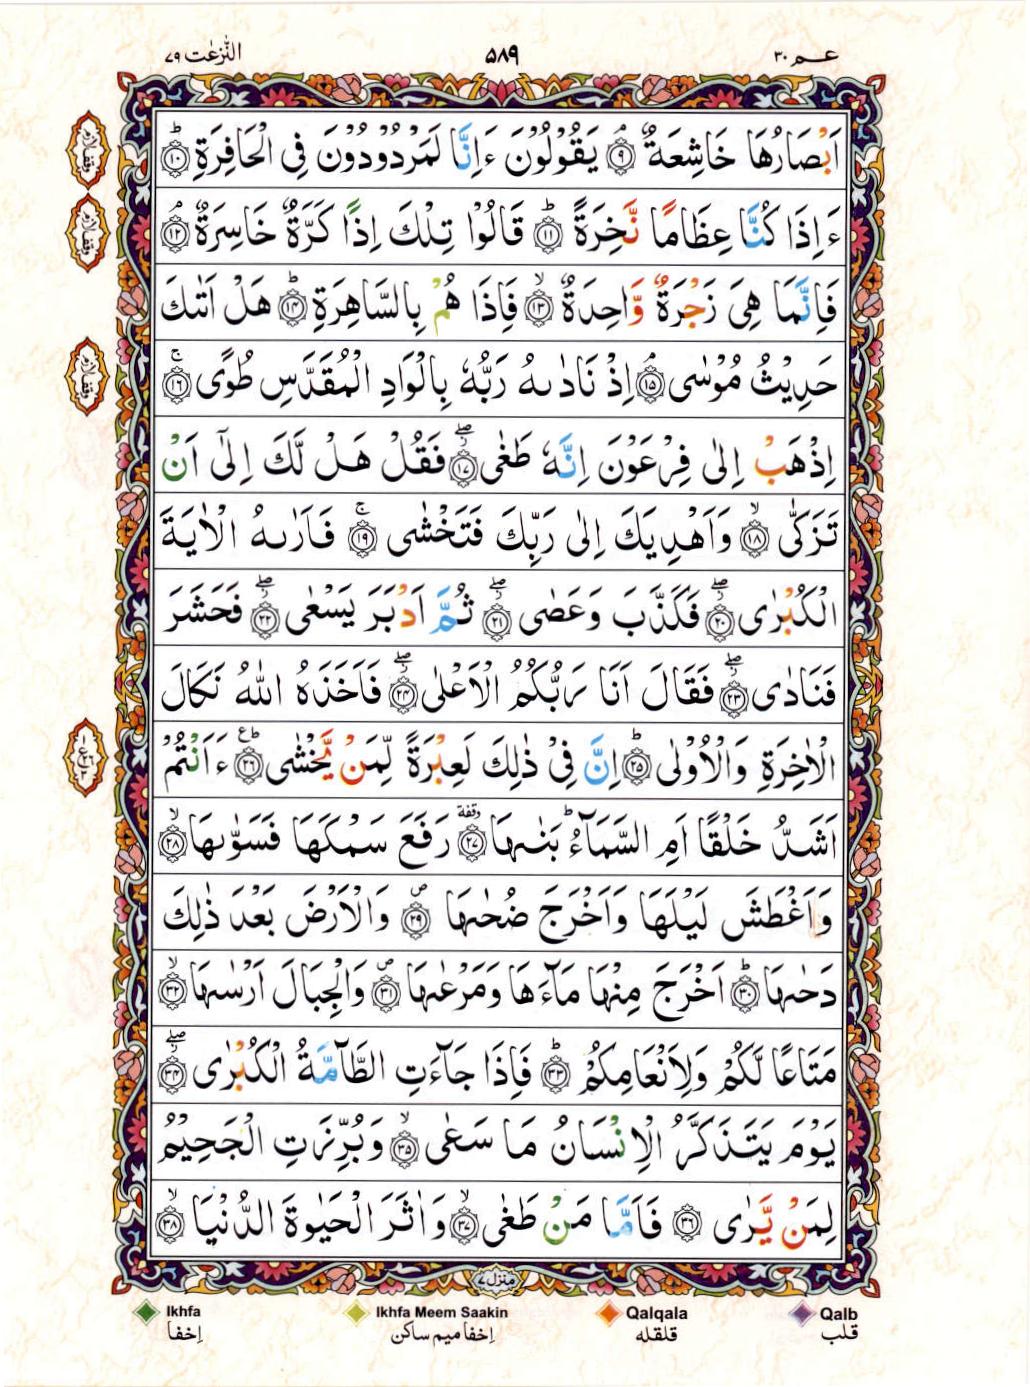 عـم ٣٠ ٥٨٩ النّٰزعٰت ٧٩
اَبْصَارُهَا خَاشِعَةٌ ۘ ﴿۹﴾ يَقُوْلُوْنَ ءَاِنَّا لَمَرْدُوْدُوْنَ فِى الْحَافِرَةِ ؕ ﴿۱۰﴾
وقف لازم
ءَاِذَا كُنَّا عِظَامًا نَّخِرَةً ؕ ﴿۱۱﴾ قَالُوْا تِلْكَ اِذًا كَرَّةٌ خَاسِرَةٌ ۘ ﴿۱۲﴾
وقف لازم
فَاِنَّمَا هِىَ زَجْرَةٌ وَّاحِدَةٌ ۙ ﴿۱۳﴾ فَاِذَا هُمْ بِالسَّاهِرَةِ ؕ ﴿۱۴﴾ هَلْ اَتٰىكَ
حَدِيْثُ مُوْسٰى ۘ ﴿۱۵﴾ اِذْ نَادٰىهُ رَبُّهٗ بِالْوَادِ الْمُقَدَّسِ طُوًى ۚ ﴿۱۶﴾
وقف لازم
اِذْهَبْ اِلٰى فِرْعَوْنَ اِنَّهٗ طَغٰى ۖ ﴿۱۷﴾ فَقُلْ هَلْ لَّكَ اِلٰٓى اَنْ
تَزَكّٰى ۙ ﴿۱۸﴾ وَاَهْدِيَكَ اِلٰى رَبِّكَ فَتَخْشٰى ۚ ﴿۱۹﴾ فَاَرٰىهُ الْاٰيَةَ
الْكُبْرٰى ۖ ﴿۲۰﴾ فَكَذَّبَ وَعَصٰى ۖ ﴿۲۱﴾ ثُمَّ اَدْبَرَ يَسْعٰى ۖ ﴿۲۲﴾ فَحَشَرَ
فَنَادٰى ۖ ﴿۲۳﴾ فَقَالَ اَنَا رَبُّكُمُ الْاَعْلٰى ۖ ﴿۲۴﴾ فَاَخَذَهُ اللّٰهُ نَكَالَ
الْاٰخِرَةِ وَالْاُوْلٰى ؕ ﴿۲۵﴾ اِنَّ فِىْ ذٰلِكَ لَعِبْرَةً لِّمَنْ يَّخْشٰى ؕع ﴿۲۶﴾ ءَاَنْتُمْ
اَشَدُّ خَلْقًا اَمِ السَّمَآءُ ؕ بَنٰىهَا وقفة ﴿۲۷﴾ رَفَعَ سَمْكَهَا فَسَوّٰىهَا ۙ ﴿۲۸﴾
وَاَغْطَشَ لَيْلَهَا وَاَخْرَجَ ضُحٰىهَا ۪ ﴿۲۹﴾ وَالْاَرْضَ بَعْدَ ذٰلِكَ
دَحٰىهَا ؕ ﴿۳۰﴾ اَخْرَجَ مِنْهَا مَآءَهَا وَمَرْعٰىهَا ۪ ﴿۳۱﴾ وَالْجِبَالَ اَرْسٰىهَا ۙ ﴿۳۲﴾
مَتَاعًا لَّكُمْ وَلِاَنْعَامِكُمْ ؕ ﴿۳۳﴾ فَاِذَا جَآءَتِ الطَّآمَّةُ الْكُبْرٰى ۖ ﴿۳۴﴾
يَوْمَ يَتَذَكَّرُ الْاِنْسَانُ مَا سَعٰى ۙ ﴿۳۵﴾ وَبُرِّزَتِ الْجَحِيْمُ
لِمَنْ يَّرٰى ﴿۳۶﴾ فَاَمَّا مَنْ طَغٰى ۙ ﴿۳۷﴾ وَاٰثَرَ الْحَيٰوةَ الدُّنْيَا ۙ ﴿۳۸﴾
منزل ٧
Ikhfa Ikhfa Meem Saakin Qalqala Qalb
إخفا إخفا ميم ساكن قلقله قلب